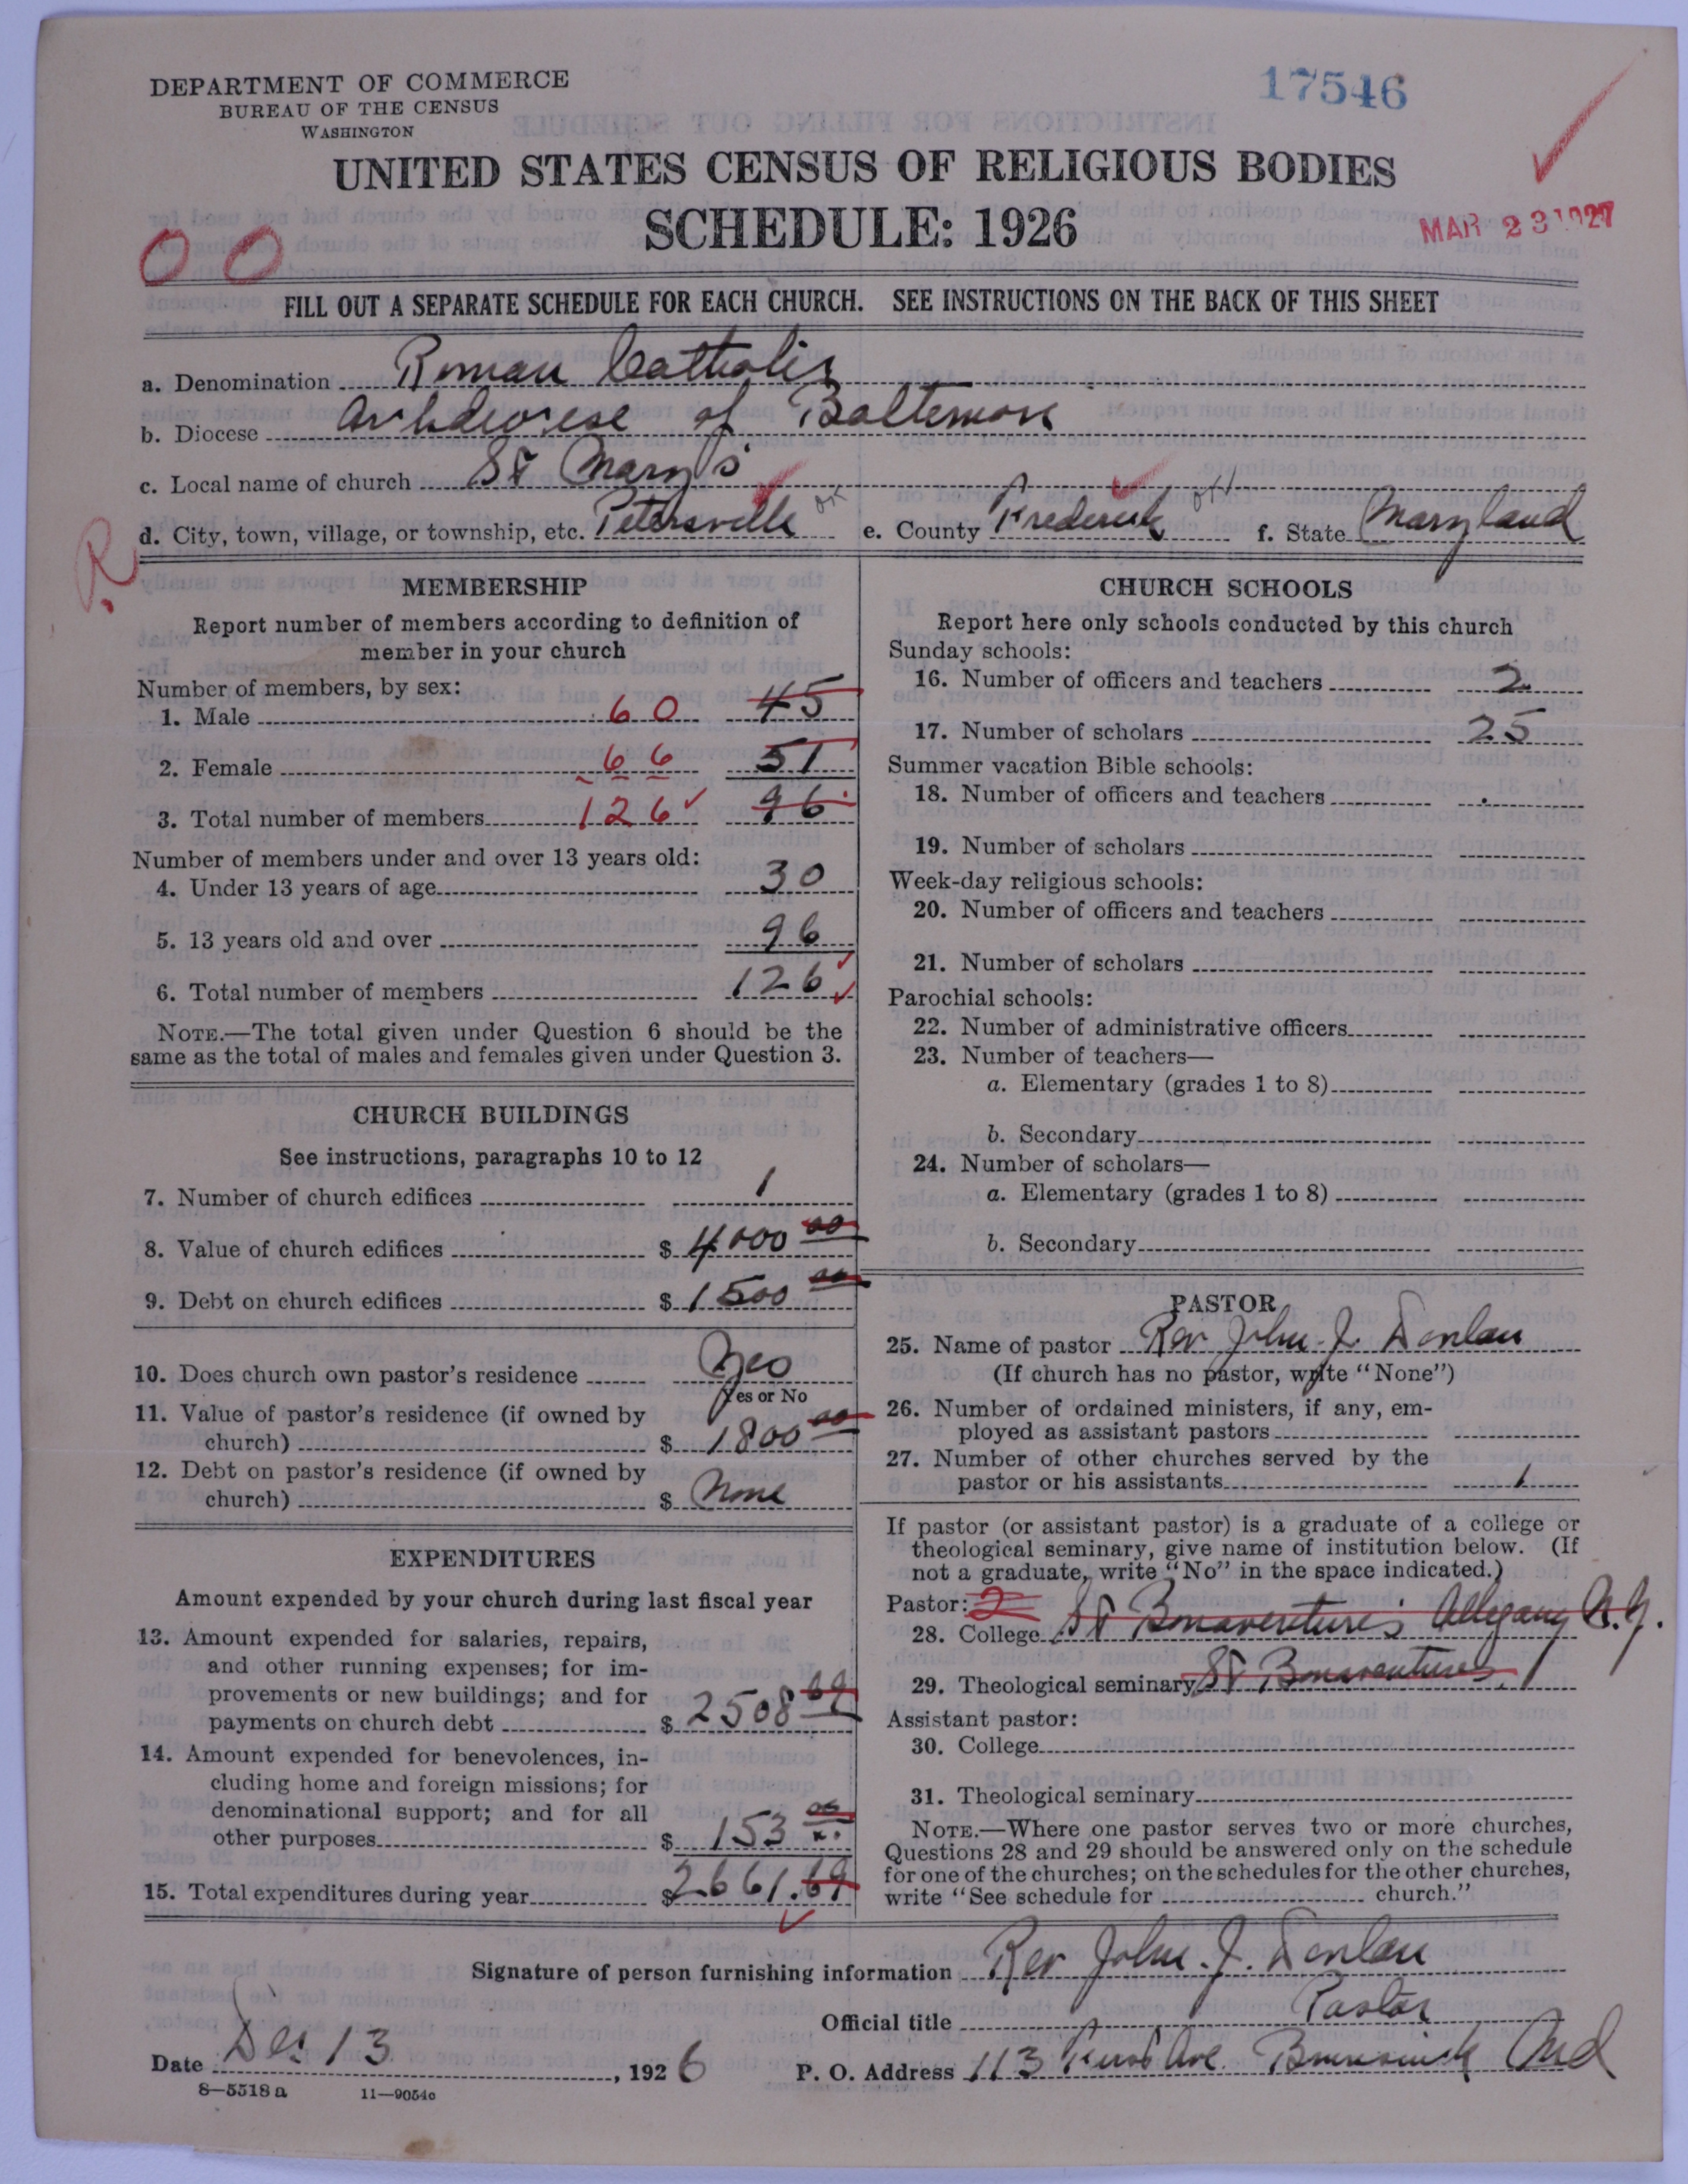 DEPARTMENT OF COMMERCE
BUREAU OF THE CENSUS
WASHINGTON
17546
UNITED STATES CENSUS OF RELIGIOUS BODIES
SCHEDULE: 1926
MAR 23 1927
00
FILL OUT A SEPARATE SCHEDULE FOR EACH CHURCH. SEE INSTRUCTIONS ON THE BACK OF THIS SHEET
a. Denomination Roman Catholic
b. Diocese Archdiocese of Baltimore
c. Local name of church St Mary's
d. City, town, village, or township, etc. Petersville ok e. County Frederick ok f. State Maryland
R
MEMBERSHIP
Report number of members according to definition of
member in your church
Number of members, by sex:
1. Male 60 45
2. Female 66 51
3. Total number of members 126 96
Number of members under and over 13 years old:
4. Under 13 years of age 30
5. 13 years old and over 96
6. Total number of members 126
NOTE.—The total given under Question 6 should be the
same as the total of males and females given under Question 3.
CHURCH BUILDINGS
See instructions, paragraphs 10 to 12
7. Number of church edifices 1
8. Value of church edifices $ 4000 00
9. Debt on church edifices $ 1500 00
10. Does church own pastor's residence Yes
Yes or No
11. Value of pastor's residence (if owned by
church) $ 1800 00
12. Debt on pastor's residence (if owned by
church) $ None
EXPENDITURES
Amount expended by your church during last fiscal year
13. Amount expended for salaries, repairs,
and other running expenses; for im-
provements or new buildings; and for
payments on church debt $ 2508 69
14. Amount expended for benevolences, in-
cluding home and foreign missions; for
denominational support; and for all
other purposes $ 153 00
15. Total expenditures during year $ 2661.69
CHURCH SCHOOLS
Report here only schools conducted by this church
Sunday schools:
16. Number of officers and teachers 2
17. Number of scholars 25
Summer vacation Bible schools:
18. Number of officers and teachers
19. Number of scholars
Week-day religious schools:
20. Number of officers and teachers
21. Number of scholars
Parochial schools:
22. Number of administrative officers
23. Number of teachers—
a. Elementary (grades 1 to 8)
b. Secondary
24. Number of scholars—
a. Elementary (grades 1 to 8)
b. Secondary
PASTOR
25. Name of pastor Rev John J. Donlan
(If church has no pastor, write "None")
26. Number of ordained ministers, if any, em-
ployed as assistant pastors
27. Number of other churches served by the
pastor or his assistants 1
If pastor (or assistant pastor) is a graduate of a college or
theological seminary, give name of institution below. (If
not a graduate, write "No" in the space indicated.)
Pastor: 2
28. College St Bonaventure's Allegany N.Y.
29. Theological seminary St Bonaventures
Assistant pastor:
30. College
31. Theological seminary
NOTE.—Where one pastor serves two or more churches,
Questions 28 and 29 should be answered only on the schedule
for one of the churches; on the schedules for the other churches,
write "See schedule for church."
Signature of person furnishing information Rev John. J. Donlan
Official title Pastor
Date Dec 13, 1926 P. O. Address 113 Ave. Brunswick Md
8—5518 a 11—9054c